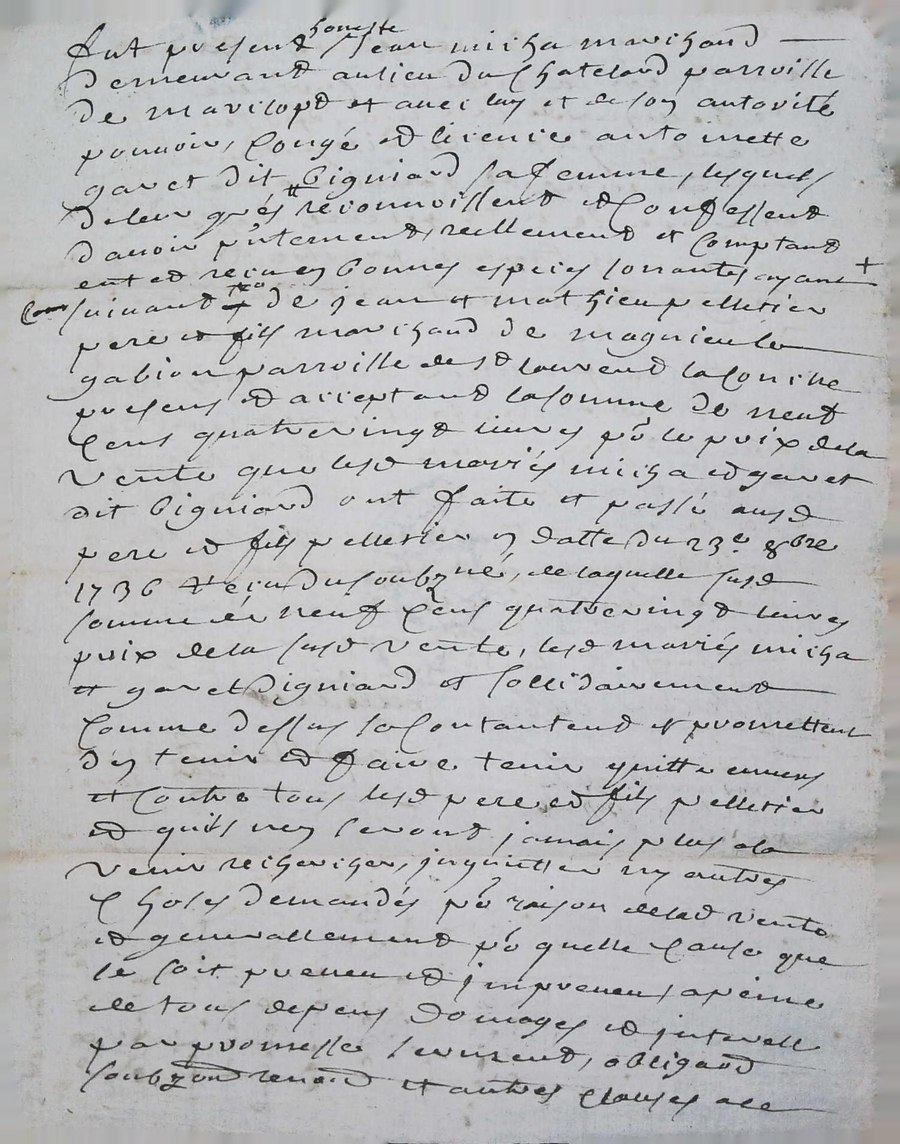 honeste
fut present Jean micha marchand
demeurant au lieu du Chatelard parroisse
de marclopt et avec luy et de son autorité
pouvoir, Congé et licence antoinette
garet dit Bigniard sa femme, lesquels
de leur grés reconnoissent et Confessent
davoir p'ntement, reellement et Comptant
eut et receu en bonnes espèces sonnantes ayant +
suivant de jean et mathieu pelletier
pere et fils marchand de magnieu le
gabion parroisse de st laurend la Conche
presens et acceptand la somme de neuf
Cens quatrevingt livres pr le prix de la
vente que lesd mariés micha et garet
dit Bigniard ont faite et passé ausd
pere et fils pelletier en datte du 23e 8bre
1736 receu du soubzné, de laquelle susd
somme de neuf Cens quatrevingt livres
prix de la susd vente, lesd mariés micha
et garet Bigniard et sollidairement
Comme dessus se Contantent et promettent
den tenir et faire tenir quitte envers
et Contre tous lesd pere et fils pelletier
et quils nen seront jamais plus a la
venir recherches, inquietter ny autres
Choses demandés pr raison de lad vente
et generallement pr quelle Cause que
ce soit preveu et impreveu, a peine
de tous depens domages et interest
par promesse serment, obligeand
soubz renond et autres Clauses &c